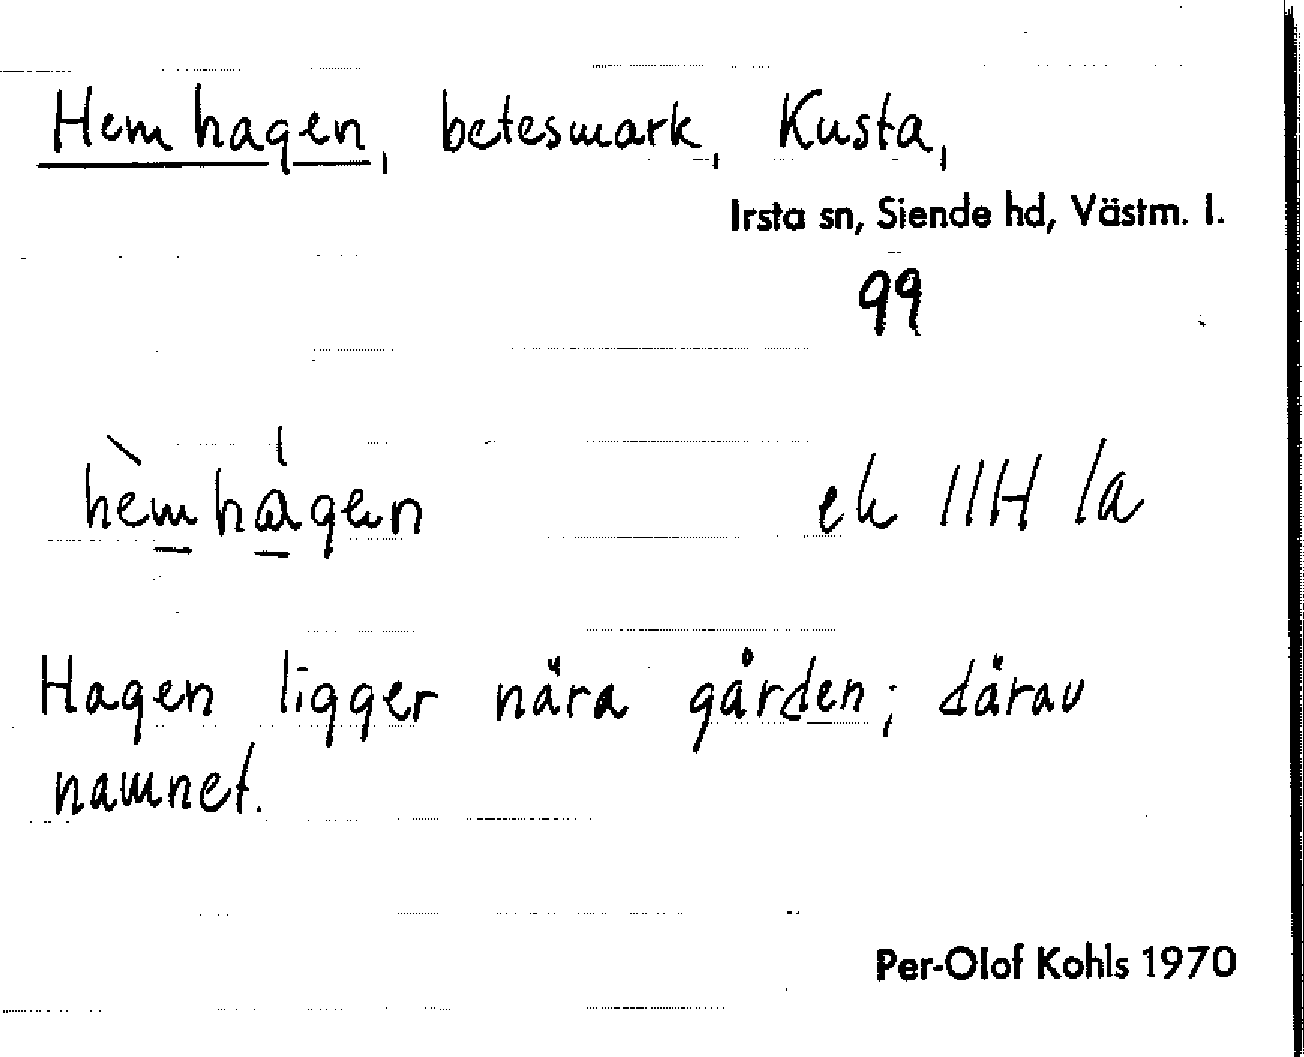 Hemhagen, betesmark, Kusta,
Irsta sn, Siende hd, Västm. l.
99
hèmhágen ek 11H 1a
Hagen ligger nära gården; därav
namnet.
Per-Olof Kohls 1970